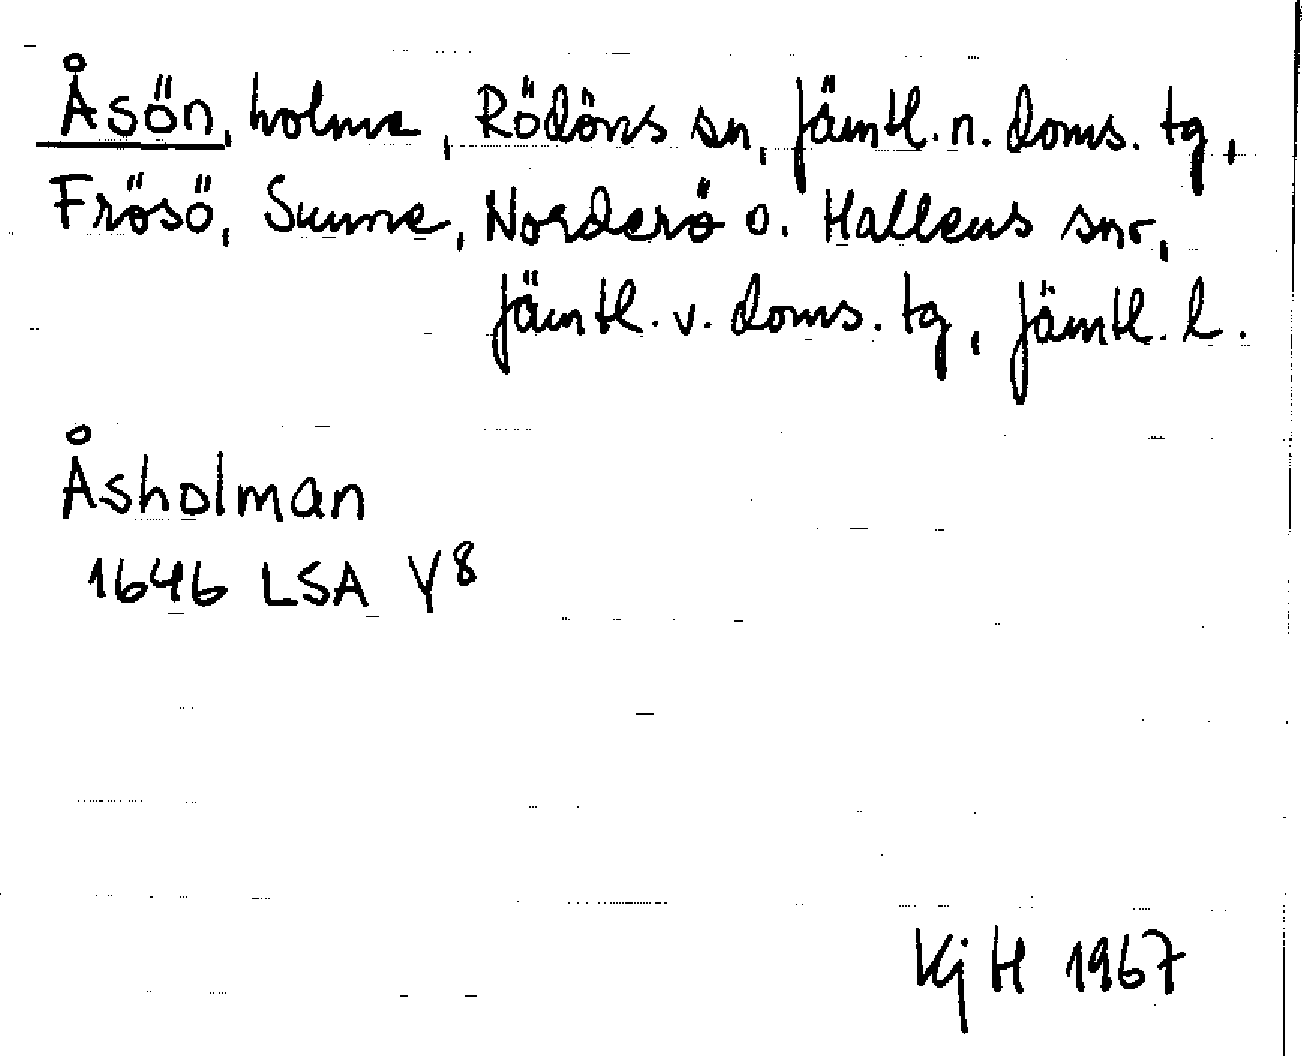 Åsön, holme, Rödöns sn, Jämtl. n. doms. tg,
Frösö, Sunne, Norderö o. Hallens snr,
Jämtl. v. doms. tg, Jämtl. l.
Åsholman
1646 LSA Y8
KjH 1967